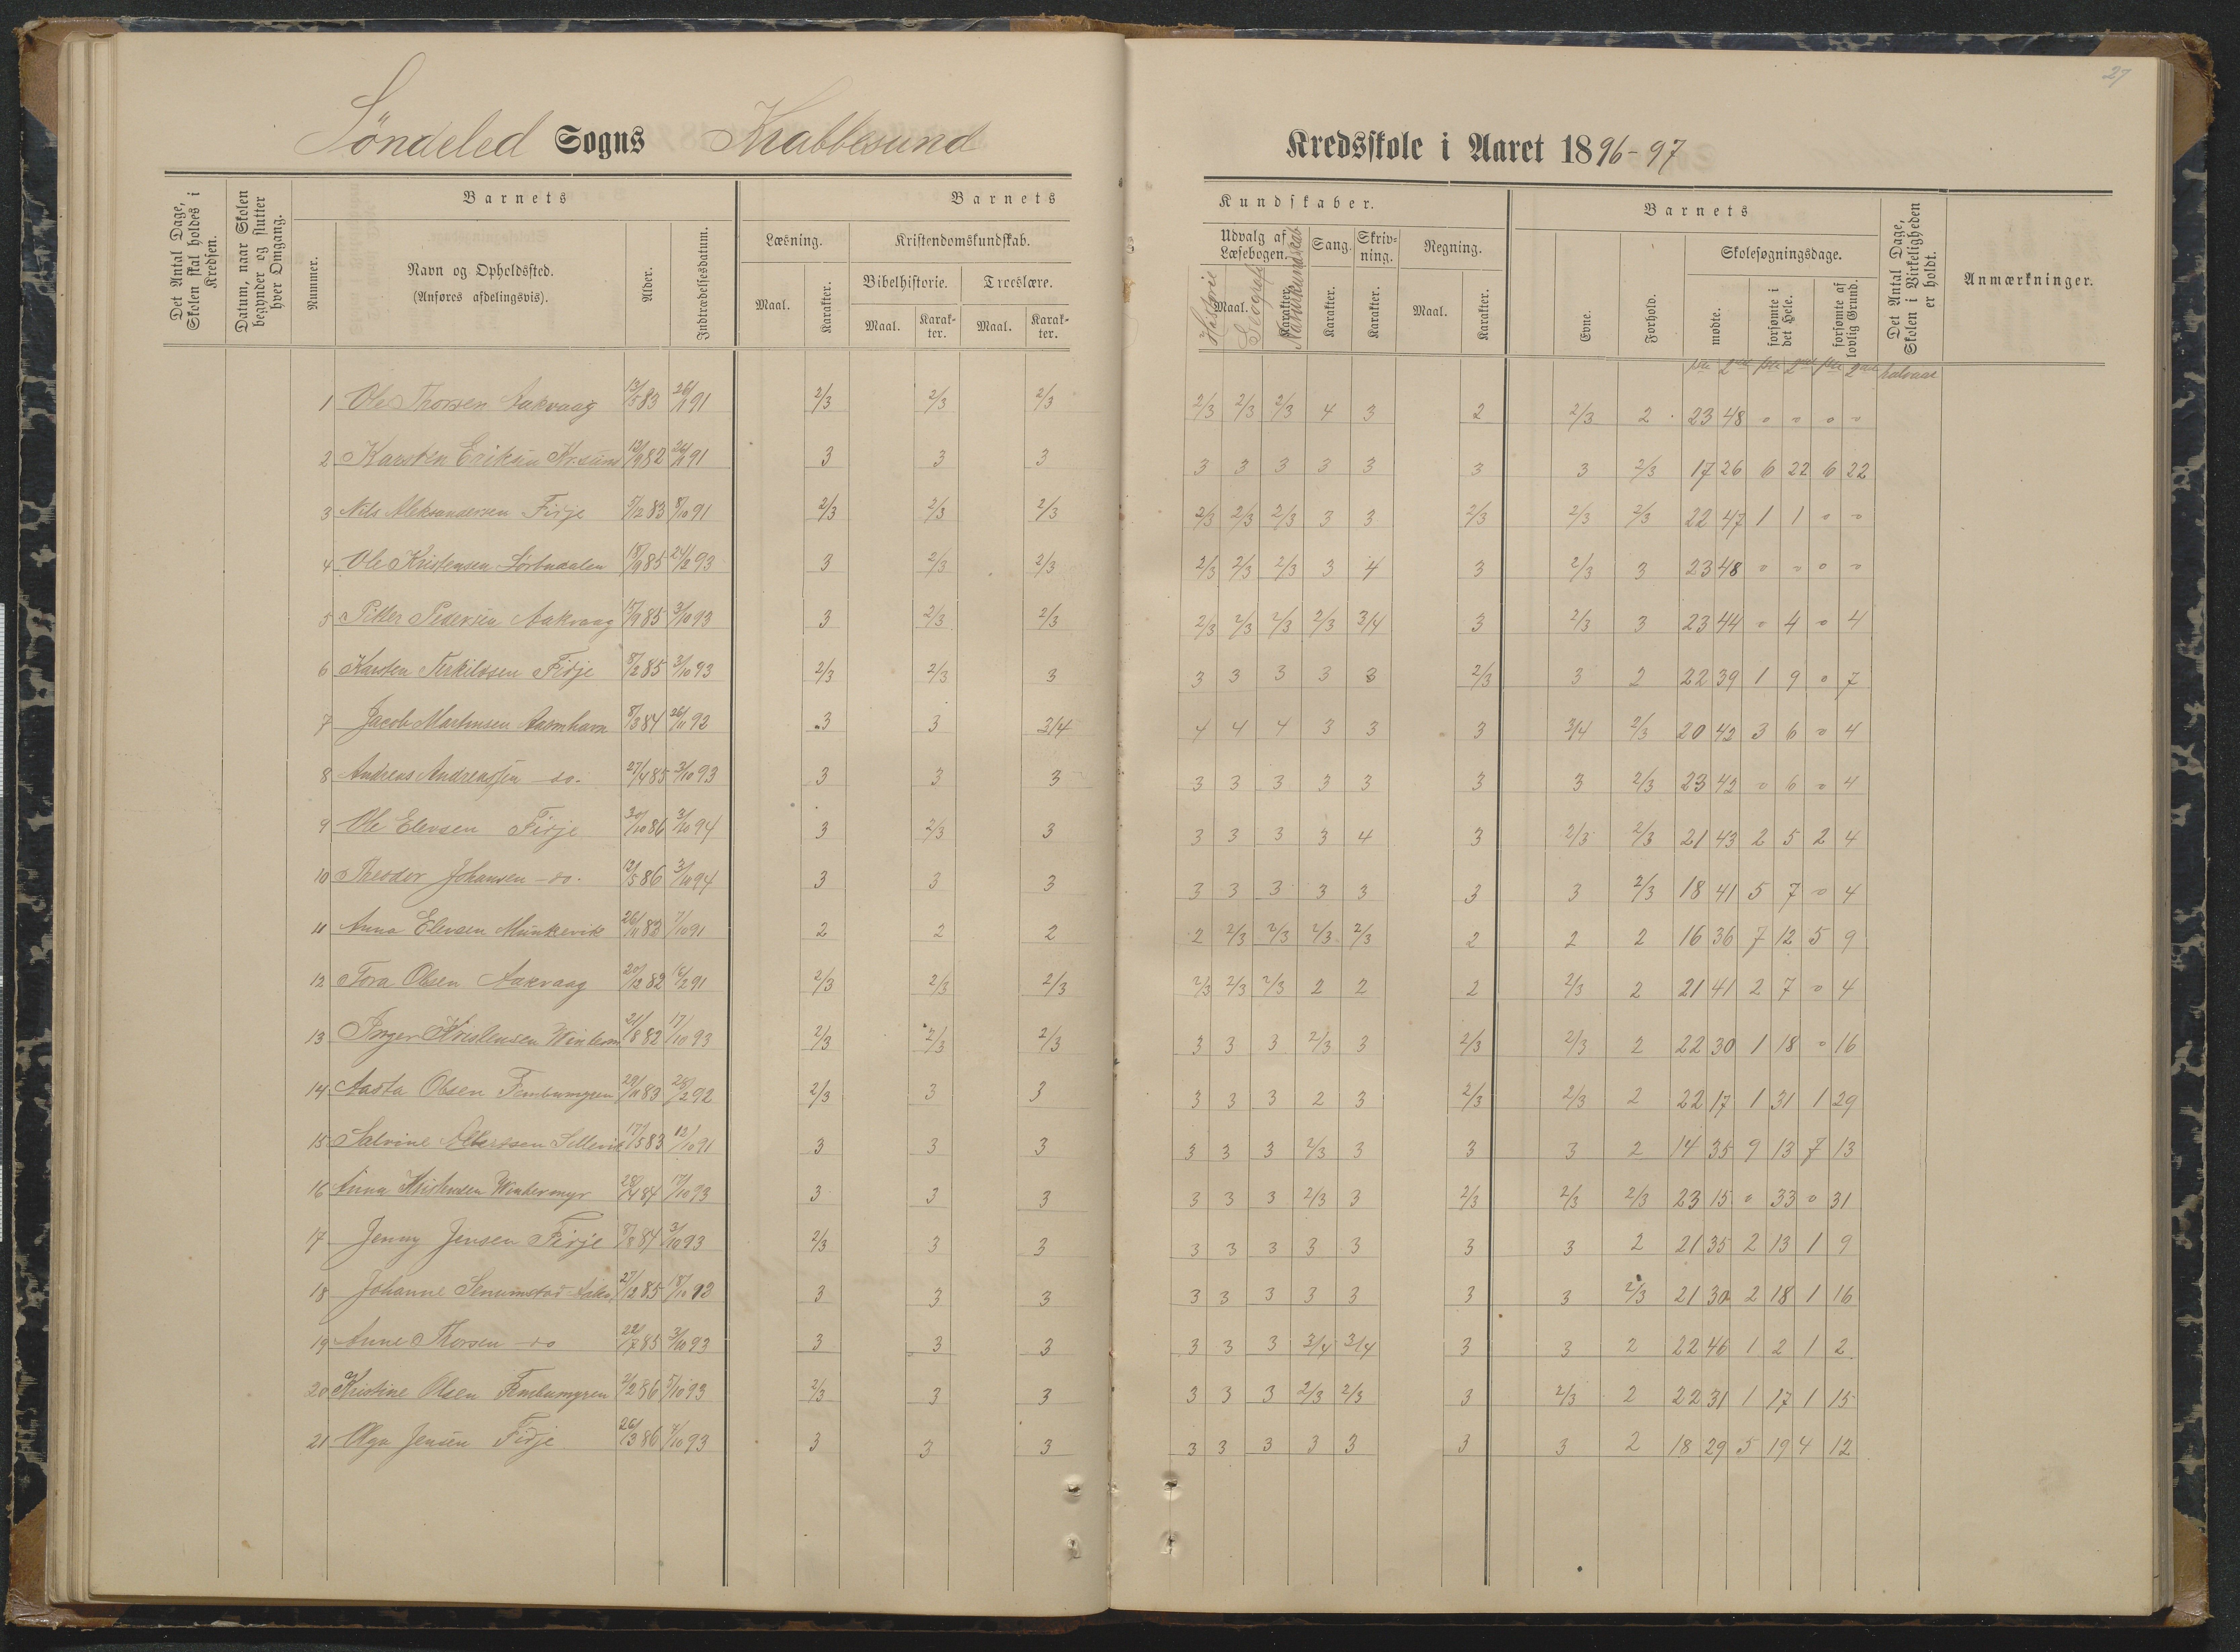 27
Söndeled Sogns Krabbesund Kredsskole i Aaret 1896-97
Det Antal Dage, Skolen skal holdes i Kredsen.
Datum, naar Skolen begynder og slutter hver Omgang.
Nummer.
Barnets
Navn og Opholdssted.
(Anføres afdelingsvis).
Alder.
Indtrædelsesdatum.
Barnets Kundskaber.
Læsning.
Maal. Karakter.
Kristendomskundskab.
Bibelhistorie. Troeslære.
Maal. Karakter. Maal. Karakter.
Udvalg af Læsebogen.
Maal. Karakter.
Historie Geografi Naturkundskab
Sang. Karakter.
Skrivning. Karakter.
Regning.
Maal. Karakter.
Barnets
Evne. Forhold.
Skolesøgningsdage.
mødte. forsømte i det Hele. forsømte af lovlig Grund.
Det Antal Dage, Skolen i Virkeligheden er holdt.
Anmærkninger.
1ste 2det 1ste 2det 1ste 2det halvaar
1 Ole Thorsen Aakvaag 13/5 83 26/11 91 2/3 2/3 2/3 2/3 2/3 2/3 4 3 2 2/3 2 23 48 0 0 0 0
2 Karsten Eriksen Kr.sund 12/9 82 26/11 91 3 3 3 3 3 3 3 3 3 3 2/3 17 26 6 22 6 22
3 Nils Aleksandersen Fidje 5/12 83 8/10 91 2/3 2/3 2/3 2/3 2/3 2/3 3 3 2/3 2/3 2/3 22 47 1 1 0 0
4 Ole Kristensen 18/9 85 24/2 93 3 2/3 2/3 2/3 2/3 2/3 3 4 3 2/3 3 23 48 0 0 0 0
5 Peder Pedersen Aakvaag 15/9 85 3/10 93 3 2/3 2/3 2/3 2/3 2/3 2/3 3/4 3 2/3 3 23 44 0 4 0 4
6 Karsten Terkilssen Fidje 8/2 85 3/10 93 2/3 2/3 3 3 3 3 3 3 2/3 3 2 22 39 1 9 0 7
7 Jacob Martinsen 8/3 84 26/11 92 3 3 3/4 4 4 4 3 3 3 3/4 2/3 20 42 3 6 0 4
8 Andreas Andreassen do. 27/4 85 3/10 93 3 3 3 3 3 3 3 3 3 3 2/3 23 42 0 6 0 4
9 Ole Elevsen Fidje 30/10 86 3/10 94 3 2/3 3 3 3 3 3 4 3 2/3 2/3 21 43 2 5 2 4
10 Theodor Johansen do. 12/5 86 3/10 94 3 3 3 3 3 3 3 3 3 3 2/3 18 41 5 7 0 4
11 Anna Elevsen Munkevik 26/11 83 7/10 91 2 2 2 2 2/3 2/3 2/3 2/3 2 2 2 16 36 7 12 5 9
12 Tora Olsen Aakvaag 20/12 82 16/2 91 2/3 2/3 2/3 2/3 2/3 2/3 2 2 2 2/3 2 21 41 2 7 0 4
13 Inger Kristensen 21/8 82 17/10 93 2/3 2/3 2/3 3 3 3 2/3 3 2/3 2/3 2 22 30 1 18 0 16
14 Aasta Olsen Fimbumyren 29/11 83 28/2 92 2/3 3 3 3 3 3 2 3 2/3 2/3 2 22 17 1 31 1 29
15 Salvine 17/5 83 12/10 91 3 3 3 3 3 3 2/3 3 3 3 2 14 35 9 13 7 13
16 Anna Kristensen Wintermyr 28/4 84 17/10 93 3 3 3 3 3 3 2/3 3 2/3 2/3 2/3 23 15 0 33 0 31
17 Jenny Jensen Fidje 8/8 84 3/10 93 2/3 3 3 3 3 3 3 3 3 3 2 21 35 2 13 1 9
18 Johanne 27/12 85 18/10 93 3 3 3 3 3 3 3 3 3 3 2/3 21 30 2 18 1 16
19 Anne Thorsen do 22/7 85 3/10 93 3 3 3 3 3 3 3/4 3/4 3 3 2 22 46 1 2 1 2
20 Kristine Olsen Fimbumyren 2/2 86 5/10 93 2/3 3 3 3 3 3 2/3 2/3 3 2/3 2 22 31 1 17 1 15
21 Olga Jensen Fidje 26/3 86 7/10 93 3 3 3 3 3 3 3 3 3 3 2 18 29 5 19 4 12